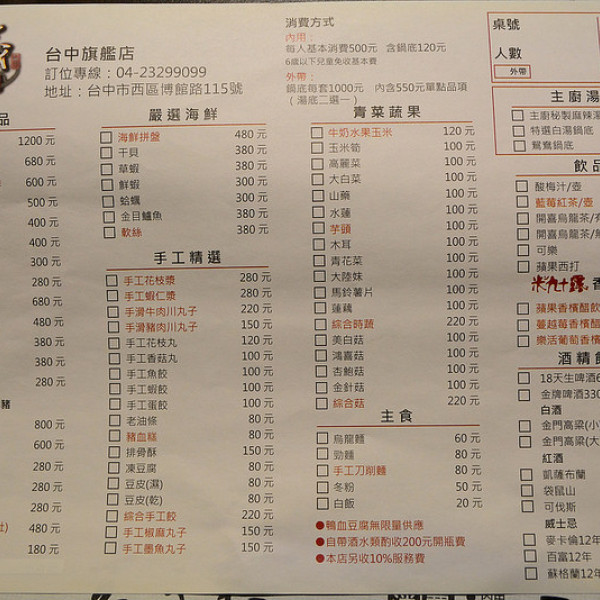 台中旗艦店
訂位專線：04-23299099
地址：台中市西區博館路115號
消費方式
內用：
每人基本消費500元 含鍋底120元
6歲以下兒童免收基本費
外帶：
鍋底每套1000元 內含550元單點品項
（湯底二選一）
桌號
人數
外帶
品
1200 元
680 元
600 元
500 元
400 元
400 元
300 元
280 元
680 元
480 元
380 元
380 元
280 元
豬
800 元
600 元
280 元
280 元
280 元
480 元
180 元
嚴選海鮮
海鮮拼盤 480 元
干貝 380 元
草蝦 300 元
鮮蝦 300 元
蛤蠣 300 元
金目鱸魚 380 元
軟絲 380 元
手工精選
手工花枝漿 280 元
手工蝦仁漿 280 元
手滑牛肉川丸子 220 元
手滑豬肉川丸子 150 元
手工花枝丸 120 元
手工香菇丸 100 元
手工魚餃 100 元
手工蝦餃 100 元
手工蛋餃 100 元
老油條 80 元
豬血糕 80 元
排骨酥 150 元
凍豆腐 80 元
豆皮(濕) 80 元
豆皮(乾) 80 元
綜合手工餃 220 元
手工椒麻丸子 150 元
手工墨魚丸子 150 元
青菜蔬果
牛奶水果玉米 120 元
玉米筍 100 元
高麗菜 100 元
大白菜 100 元
山藥 100 元
水蓮 100 元
芋頭 100 元
木耳 100 元
青花菜 100 元
大陸妹 100 元
馬鈴薯片 100 元
蓮藕 100 元
綜合時蔬 220 元
美白菇 100 元
鴻喜菇 100 元
杏鮑菇 100 元
金針菇 100 元
綜合菇 220 元
主食
烏龍麵 60 元
勁麵 80 元
手工刀削麵 80 元
冬粉 50 元
白飯 20 元
●鴨血豆腐無限量供應
●自帶酒水類酌收200元開瓶費
●本店另收10%服務費
主廚湯
主廚秘製麻辣湯
特選白湯鍋底
鴛鴦鍋底
飲品
酸梅汁/壺
藍莓紅茶/壺
開喜烏龍茶/有
開喜烏龍茶/無
可樂
蘋果西打
米九十露 香
蘋果香檳醋飲
蔓越莓香檳醋
樂活葡萄香檳
酒精飲
18天生啤酒6
金牌啤酒330
白酒
金門高梁(小)
金門高梁(大)
紅酒
凱薩布蘭
袋鼠山
可伐斯
威士忌
麥卡倫12年
百富12年
蘇格蘭12年